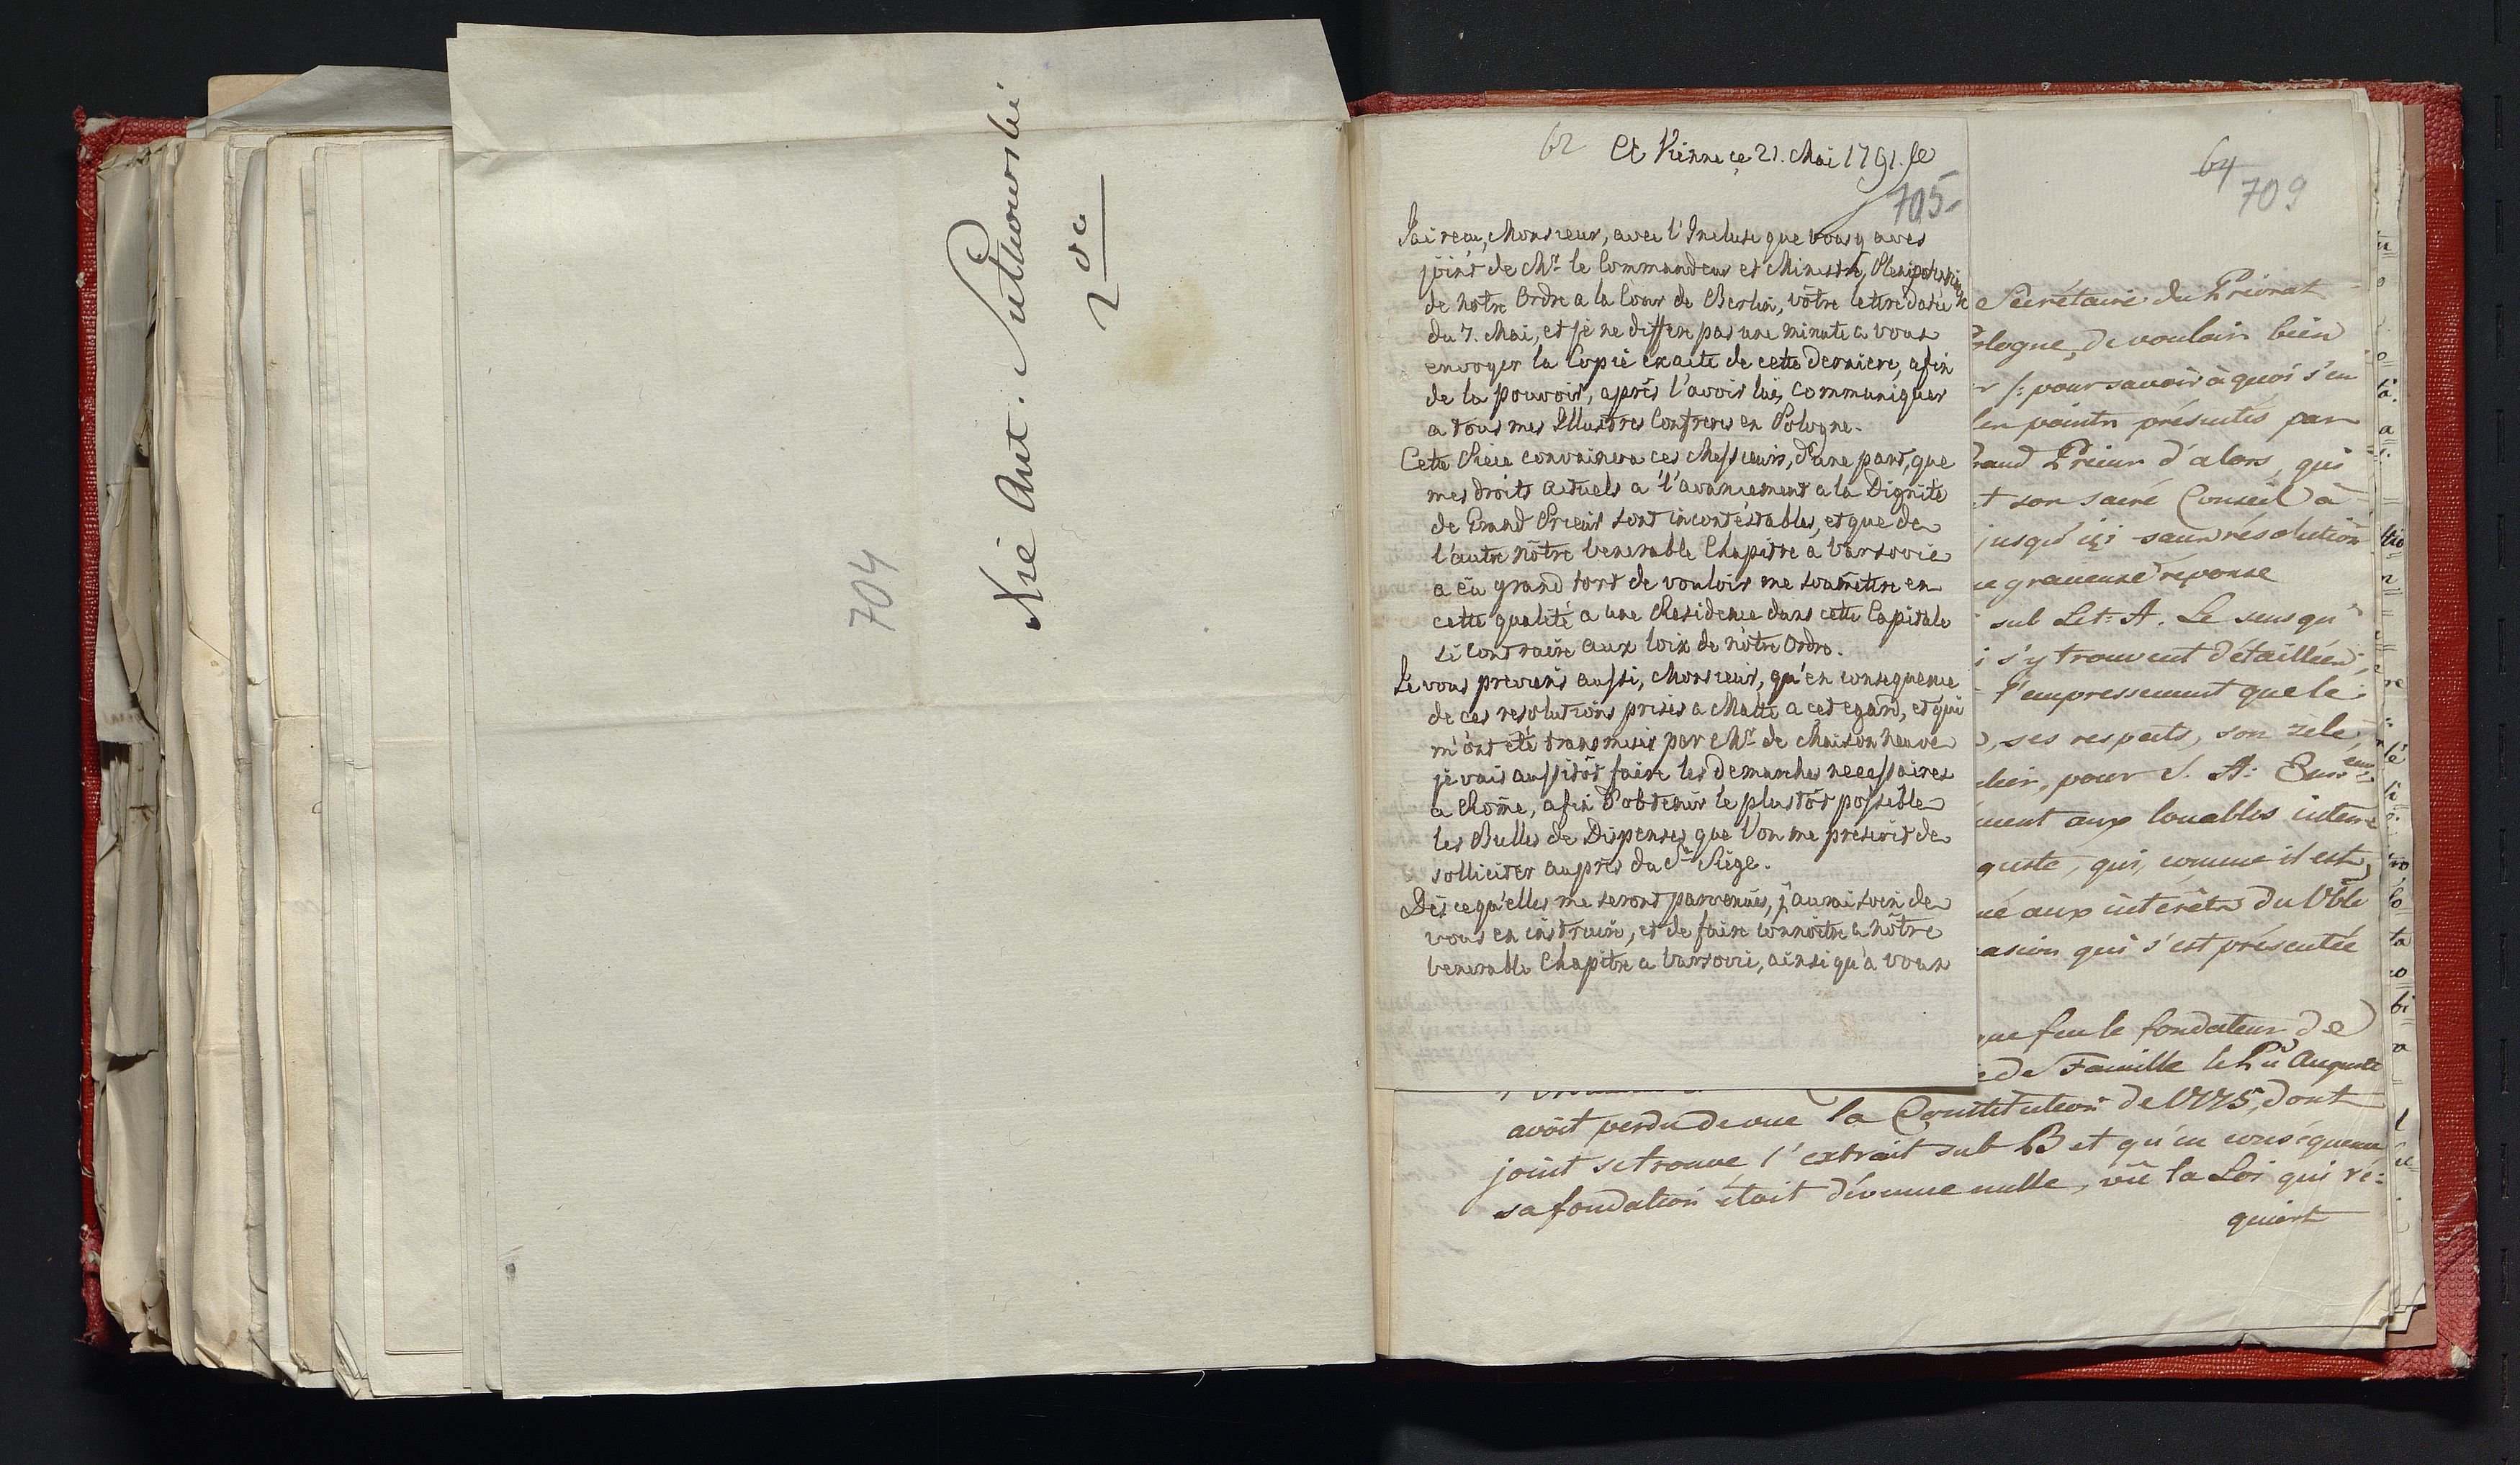 Xie Ant. Sułkowski
704
62
A Vienne ce 21. Mai 1791.
705
J'ai reçu, Monsieur, avec l'Incluse que vous y avés
joint de Mr. le Commandeur et Ministre Plenipotentiaire
de notre Ordre a la Cour de Berlin, vôtre lettre datée
du 7. Mai, et je ne differe pas une minute a vous
envoyer la Copie exacte de cette derniere, afin
de la pouvoir, après l'avoir lüe, communiquer
a tous mes Illustres Confreres en Pologne.
Cette Piece convainera ces Messieurs, d'une part, que
mes droits actuels a l'avancement a la Dignité
de Grand Prieur sont incontéstables, et que de
l'autre nôtre venerable Chapitre a Varsovie
a eu grand tort de vouloir me soumettre en
cette qualité a une Residence dans cette Capitale
si contraire aux loix de nôtre Ordre.
Je vous previens aussi, Monsieur, qu'en consequence
de ces resolutions prises a Malte a cet egard, et qui
m'ont été transmises par Mr. de Maisonneuve
je vais aussitôt faire les demarches necessaires
a Rome, afin d'obtenir le plustôt possible
les Bulles de Dispenses que l'on me prescrit de
solliciter aupres du St. Siége.
Dès ce qu'elles me seront parvenües, j'aurai soin de
vous en instruire, et de faire connoitre a nôtre
venerable Chapitre a Varsovie, ainsi qu'a vous
64
709
e Secrétaire du Prieurat
ologne, de vouloir bien
r /: pour savoir à quoi s'en
en points présentés par
rand Prieur d'alors, qui
t son sacré Conseil à
jusqu'ici sans résolution
e gracieuse réponse
sub Let: A. Le sens qu'
i s'y trouvent détaillées,
l'empressement que le
, ses respects, son zele,
lier, pour S. A: Em
ment aux louables inten
guste, qui, comme il est
ué aux intérêts du Vble
asion qui s'est présentée
que feu le fondateur de
e de Famille le Pce Auguste
avoit perdu de vue la Constitution de 1775, dont
joint se trouve l'extrait sub B et qu'en conséquence
sa fondation étoit dévenue nulle, vû la Loi qui re:
quiert